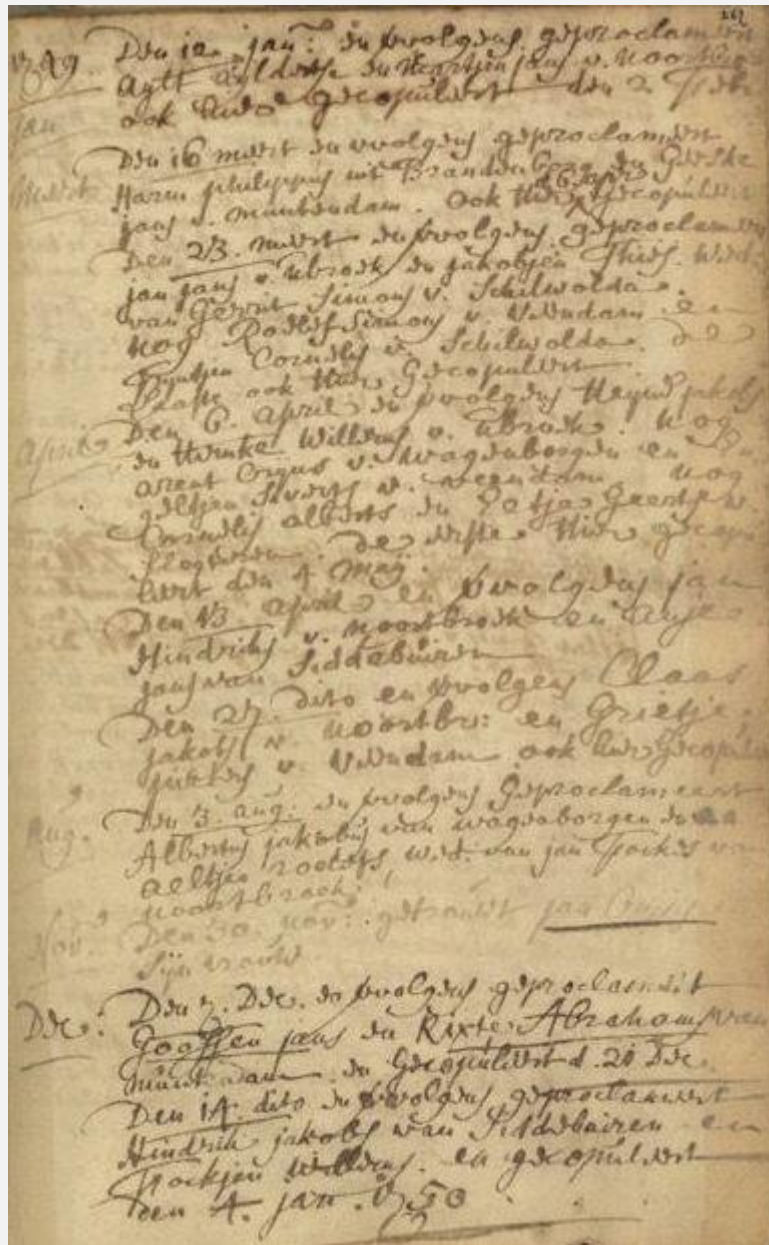 262
1749. Den 12. jan: en vvolgens geproclameert
Jan
ook hier gecopuleert den 2 Feb:
Den 16 meert en vvolgens geproclameert
Meert Harm philippus uit Brandenborg en Geeske
jans v. muntendam. ook hier gecopuleert
Den 23. meert en vvolgens geproclameert
jan jans v. Nbroek en jakobjen Thies. wed:
van Gerrit Simons v. Schilwolda.
nog Roelef Simons v. Veendam en
Trijntjen Cornelis v. Schilwolda. de
laaste ook hier Gecopuleert.
April Den 6. April en vvolgens jakobs
en Hemke Willems v. Nbroek. nog
arent v. wagenborgen en
Siverts v. veendam nog
Cornelis alberts en Geerts v.
de eerste hier gecopu-
leert den 4 maij.
Den 13 april en vvolgens jan
Hindriks v. noortbroek en
jans van Siddebuiren
Den 27. dito en vvolgens Claas
jakobs v. noortbr: en Grietje
v. Veendam ook hier Gecopul
Aug. Den 3. aug: en vvolgens Geproclameert
Albertus jakobus van wagenborgen en
Aeltjen roelefs, wed. van jan Fockes van
noortbroek.
Nov. Den 30. nov: getrouwt jan
Sijn vrouw
Dec: Den 7. Dec. en vvolgens geproclameert
Goossen jans en Rixte Abrahams van
muntendam en Gecopuleert d. 21 Dec.
Den 14. dito en vvolgens geproclameert
Hindrik jakobs van Siddebuiren en
Fockjen Willems. en gecopuleert
den 4. jan. 1750